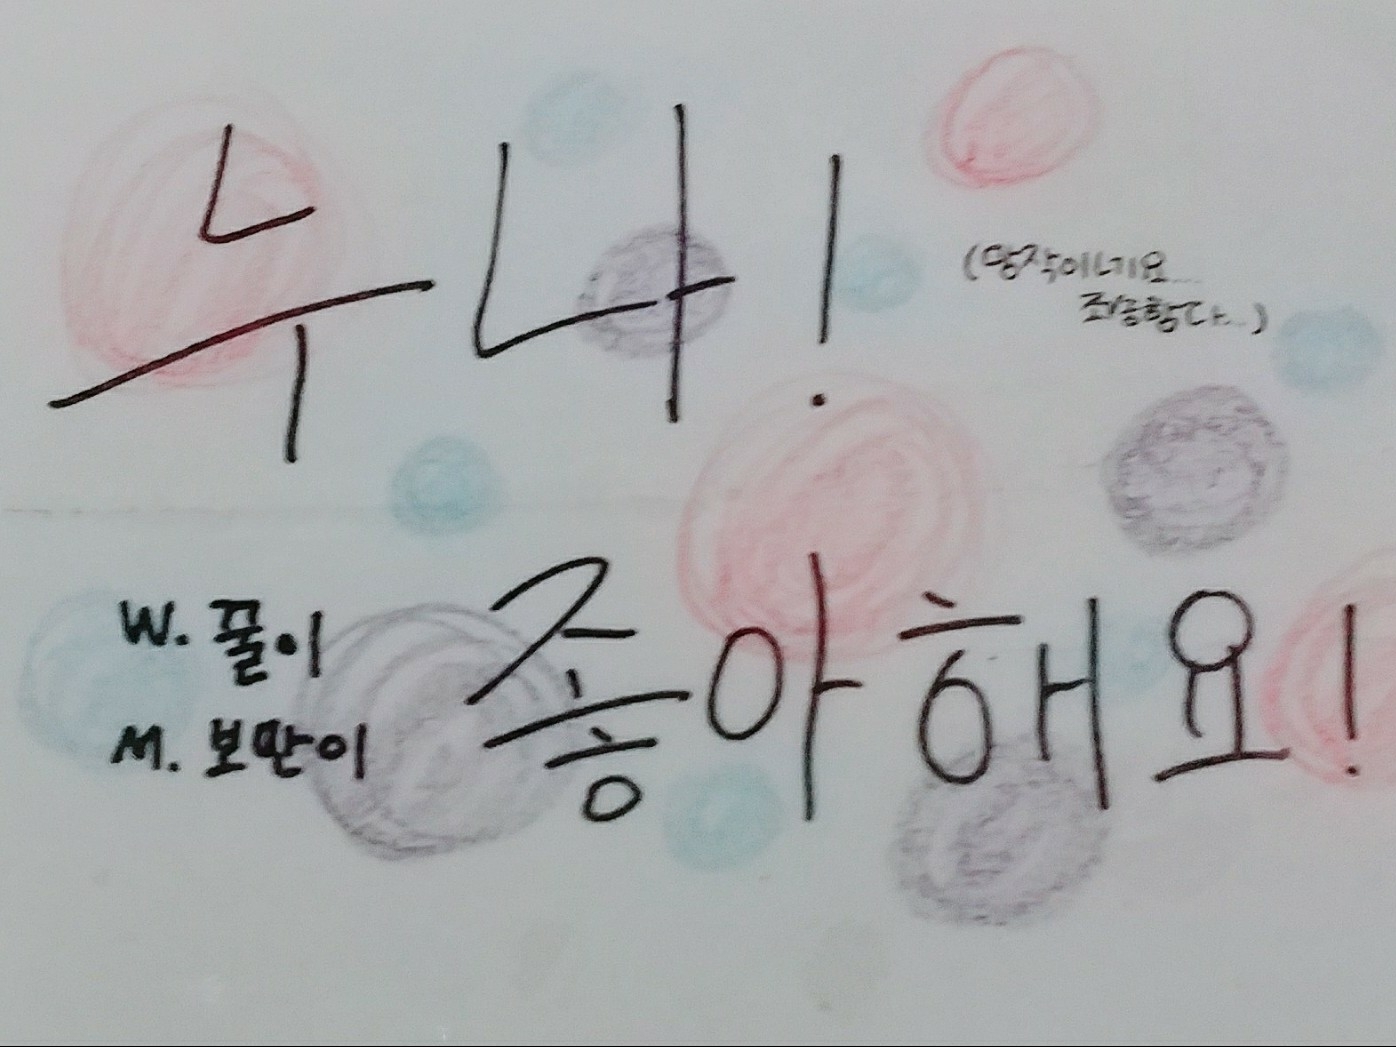 누나!
(망작이네요...
죄송함다...)
좋아해요!
W. 꿀이
M. 보만이